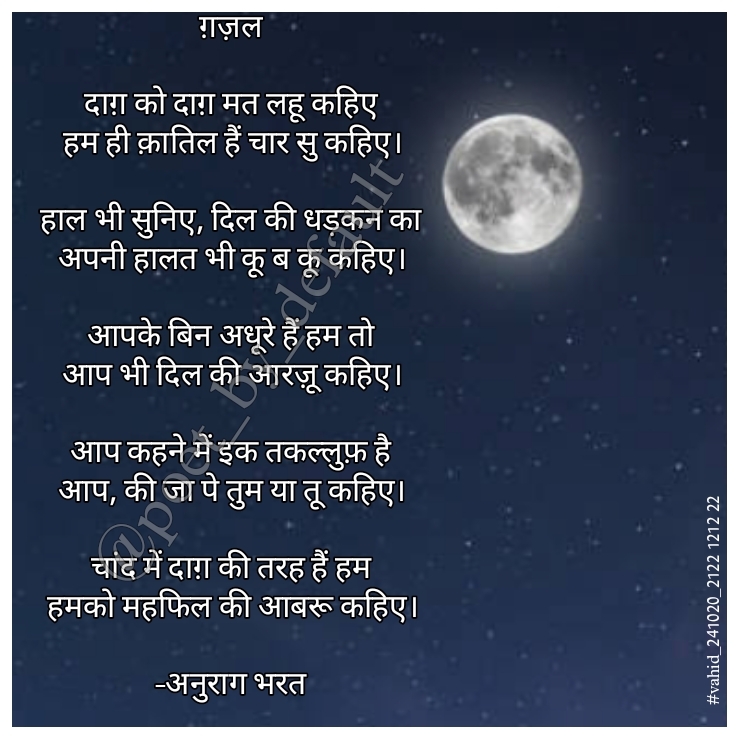 ग़ज़ल
दाग़ को दाग़ मत लहू कहिए
हम ही क़ातिल हैं चार सु कहिए।
हाल भी सुनिए, दिल की धड़कन का
अपनी हालत भी कू ब कू कहिए।
आपके बिन अधूरे हैं हम तो
आप भी दिल की आरज़ू कहिए।
आप कहने में इक तकल्लुफ़ है
आप, की जा पे तुम या तू कहिए।
चांद में दाग़ की तरह हैं हम
हमको महफिल की आबरू कहिए।
-अनुराग भरत
@poet_by_default
#vahid_241020_2122 1212 22